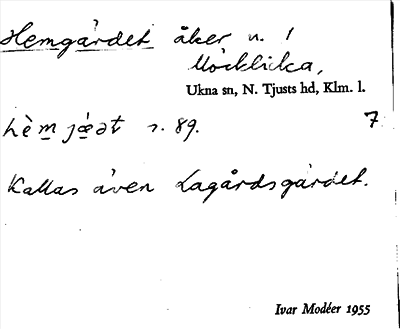 Hemgärdet åker n. 1
Möcklicka,
Ukna sn, N. Tjusts hd, Klm. l.
s. 89. 7
Kallas även Lagårdsgärdet.
Ivar Modéer 1955